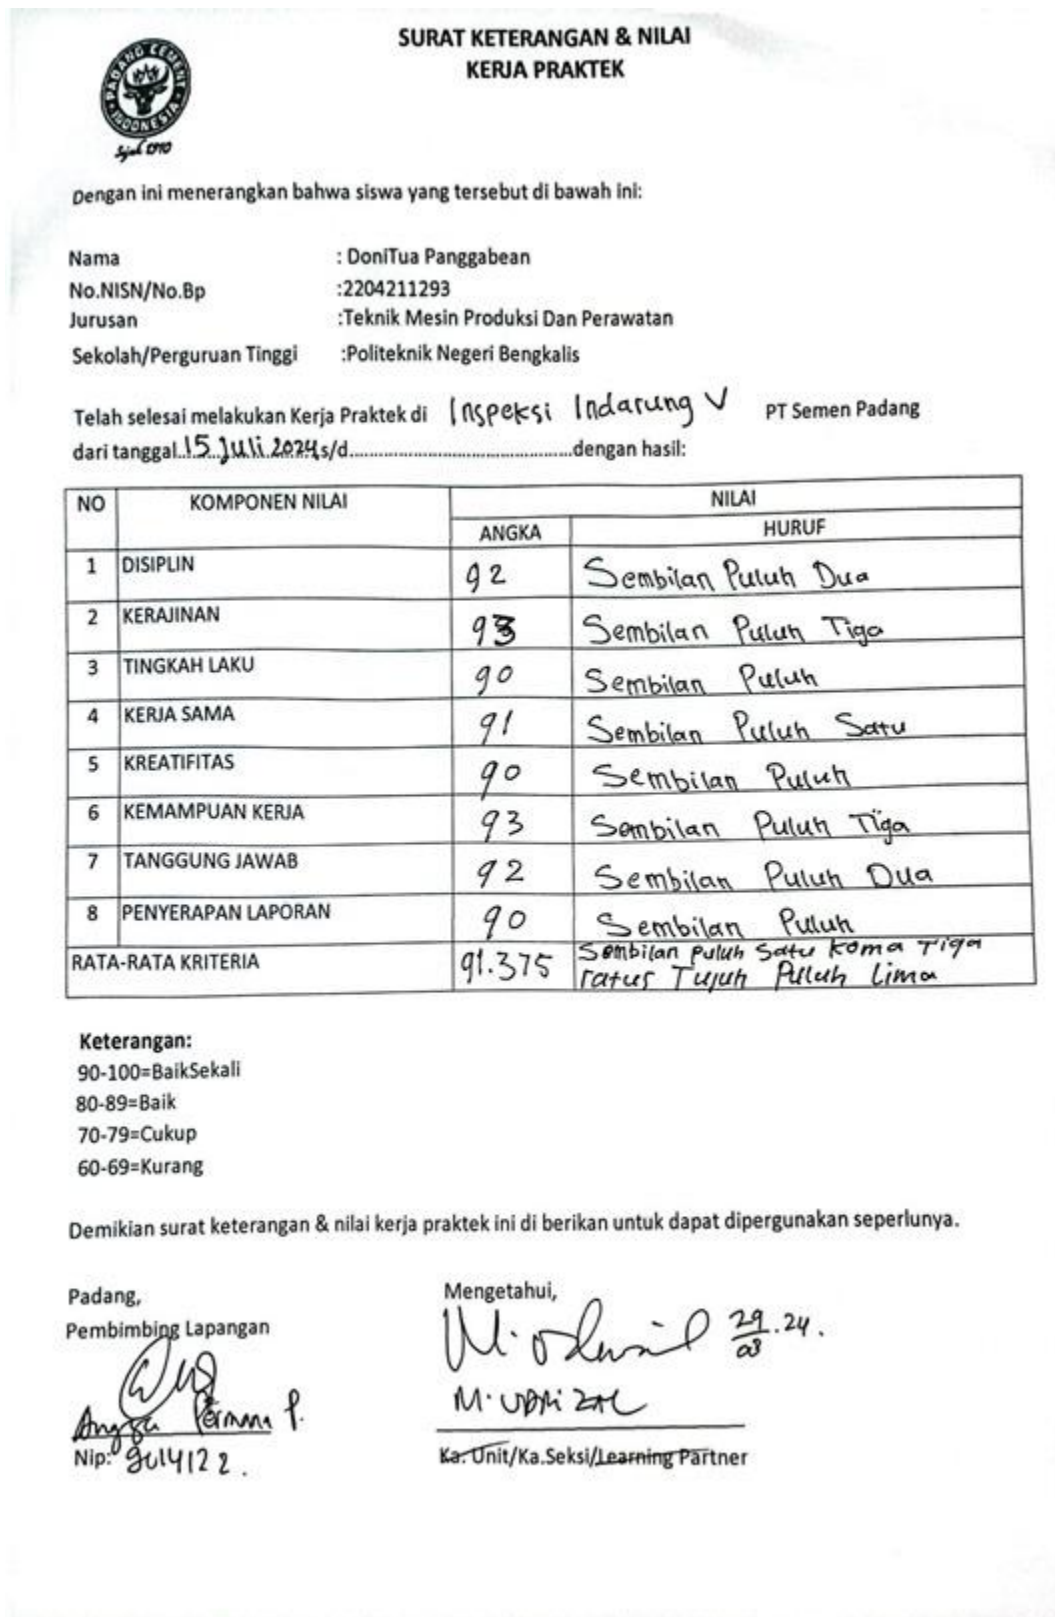 SURAT KETERANGAN & NILAI
KERJA PRAKTEK
PADANG CEMENT INDONESIA
Sejak 1910
Dengan ini menerangkan bahwa siswa yang tersebut di bawah ini:
Nama : DoniTua Panggabean
No.NISN/No.Bp :2204211293
Jurusan :Teknik Mesin Produksi Dan Perawatan
Sekolah/Perguruan Tinggi :Politeknik Negeri Bengkalis
Telah selesai melakukan Kerja Praktek di Inspeksi Indarung V PT Semen Padang
dari tanggal 15 Juli 2024 s/d...........................................dengan hasil:
NO KOMPONEN NILAI NILAI
ANGKA HURUF
1 DISIPLIN 92 Sembilan Puluh Dua
2 KERAJINAN 93 Sembilan Puluh Tiga
3 TINGKAH LAKU 90 Sembilan Puluh
4 KERJA SAMA 91 Sembilan Puluh Satu
5 KREATIFITAS 90 Sembilan Puluh
6 KEMAMPUAN KERJA 93 Sembilan Puluh Tiga
7 TANGGUNG JAWAB 92 Sembilan Puluh Dua
8 PENYERAPAN LAPORAN 90 Sembilan Puluh
RATA-RATA KRITERIA 91.375 Sembilan puluh Satu koma Tiga
ratus Tujuh Puluh Lima
Keterangan:
90-100=BaikSekali
80-89=Baik
70-79=Cukup
60-69=Kurang
Demikian surat keterangan & nilai kerja praktek ini di berikan untuk dapat dipergunakan seperlunya.
Padang,
Pembimbing Lapangan
Angga Permana P.
Nip:
Mengetahui,
29/03.24.
M. UDRIZAL
Ka. Unit/Ka.Seksi/Learning Partner